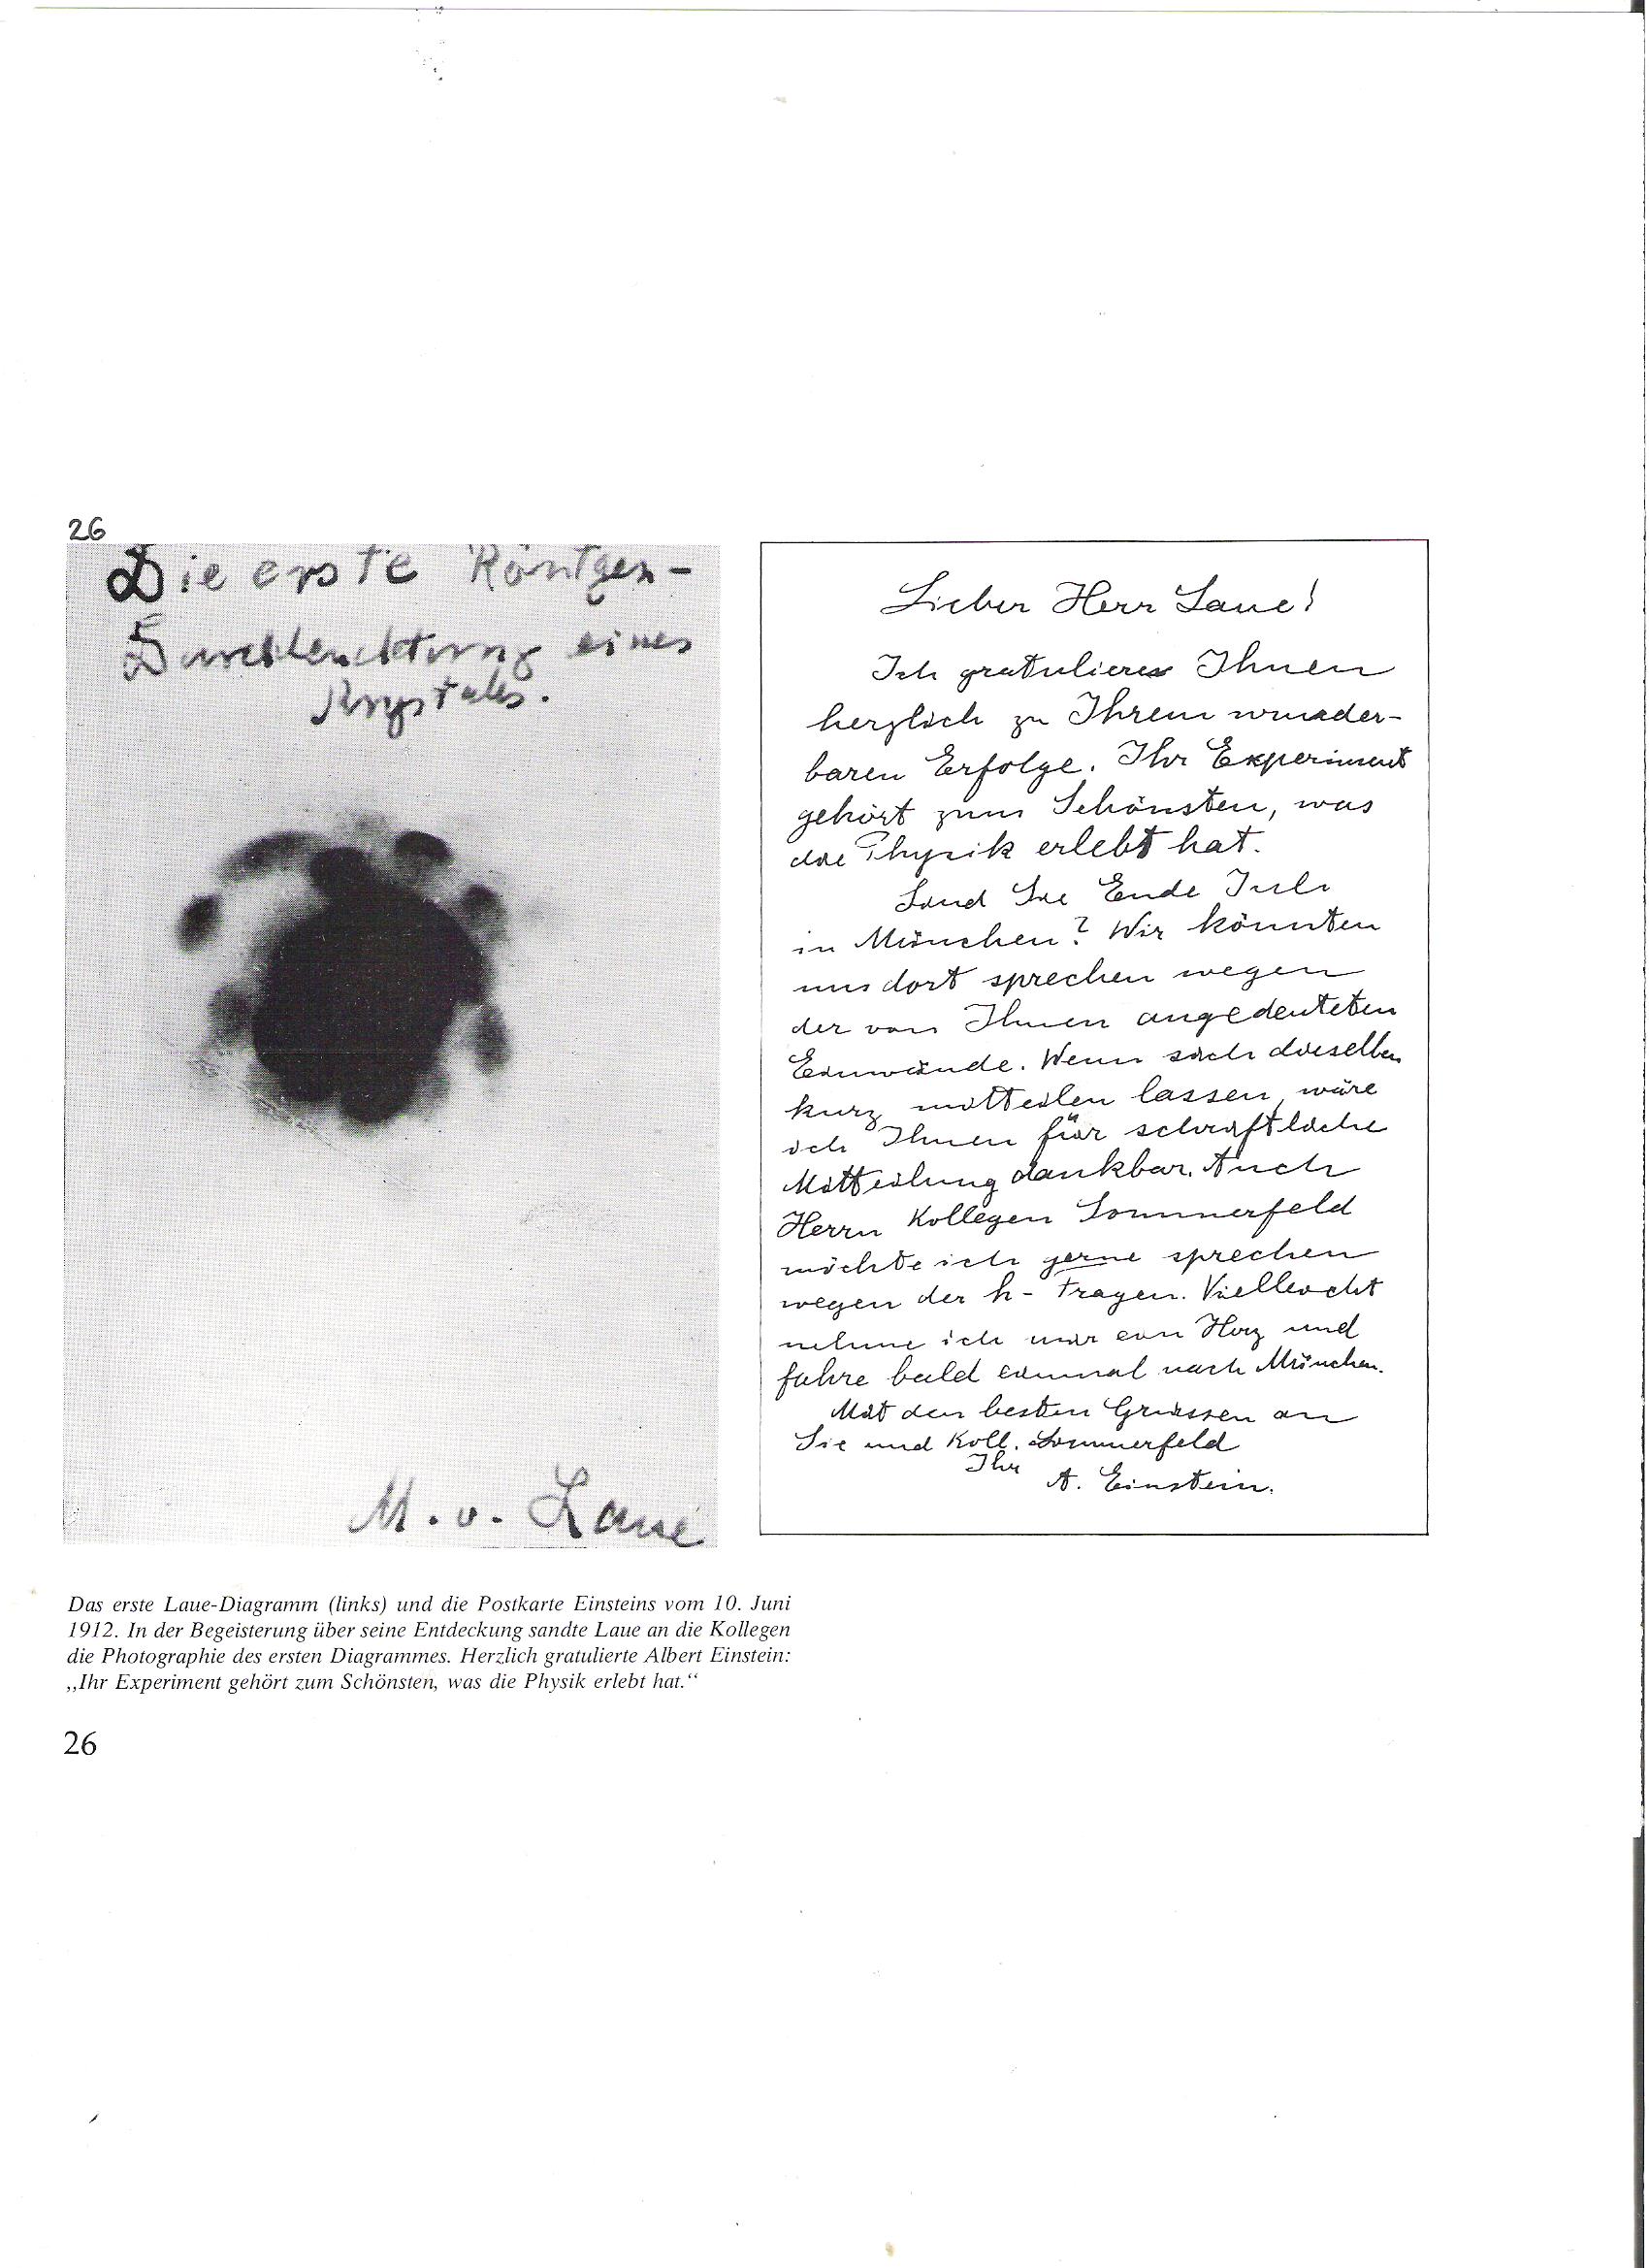 26
Die erste Röntgen-
Durchleuchtung eines
Krystalls.
M. v. Laue
Lieber Herr Laue!
Ich gratuliere Ihnen
herzlich zu Ihrem wunder-
baren Erfolge. Ihr Experiment
gehört zum Schönsten, was
die Physik erlebt hat.
Sind Sie Ende Juli
in München? Wir könnten
uns dort sprechen wegen
der von Ihnen angedeuteten
Einwände. Wenn sich dieselben
kurz mitteilen lassen, wäre
ich Ihnen für schriftliche
Mitteilung dankbar. Auch
Herrn Kollegen Sommerfeld
möchte ich gerne sprechen
wegen der h-Fragen. Vielleicht
nehme ich mir ein Herz und
fahre bald einmal nach München.
Mit den besten Grüssen an
Sie und Koll. Sommerfeld
Ihr
A. Einstein.
Das erste Laue-Diagramm (links) und die Postkarte Einsteins vom 10. Juni
1912. In der Begeisterung über seine Entdeckung sandte Laue an die Kollegen
die Photographie des ersten Diagrammes. Herzlich gratulierte Albert Einstein:
„Ihr Experiment gehört zum Schönsten, was die Physik erlebt hat.“
26